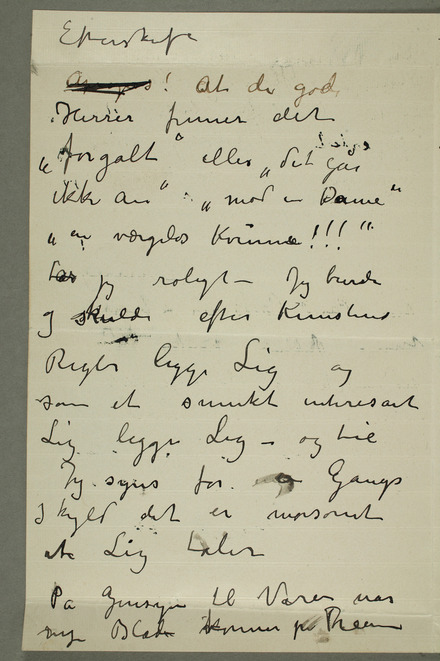 Efterskrift
! At de gode
Herrer finner det
„for galt" eller „det går
ikke an" „mod en Dame"
„en værgeløs Kvinne!!!"
tar jeg roligt – Jeg burde
og skulde efter Kunstens
Regler ligge Lig og
som et smukt interesant
Lig ligge Lig – og tie
Jeg synes for en Gangs
skyld det er morsomt
at Lig taler
På Gjensyn til Våren når
nye Blade kommer på Træerne